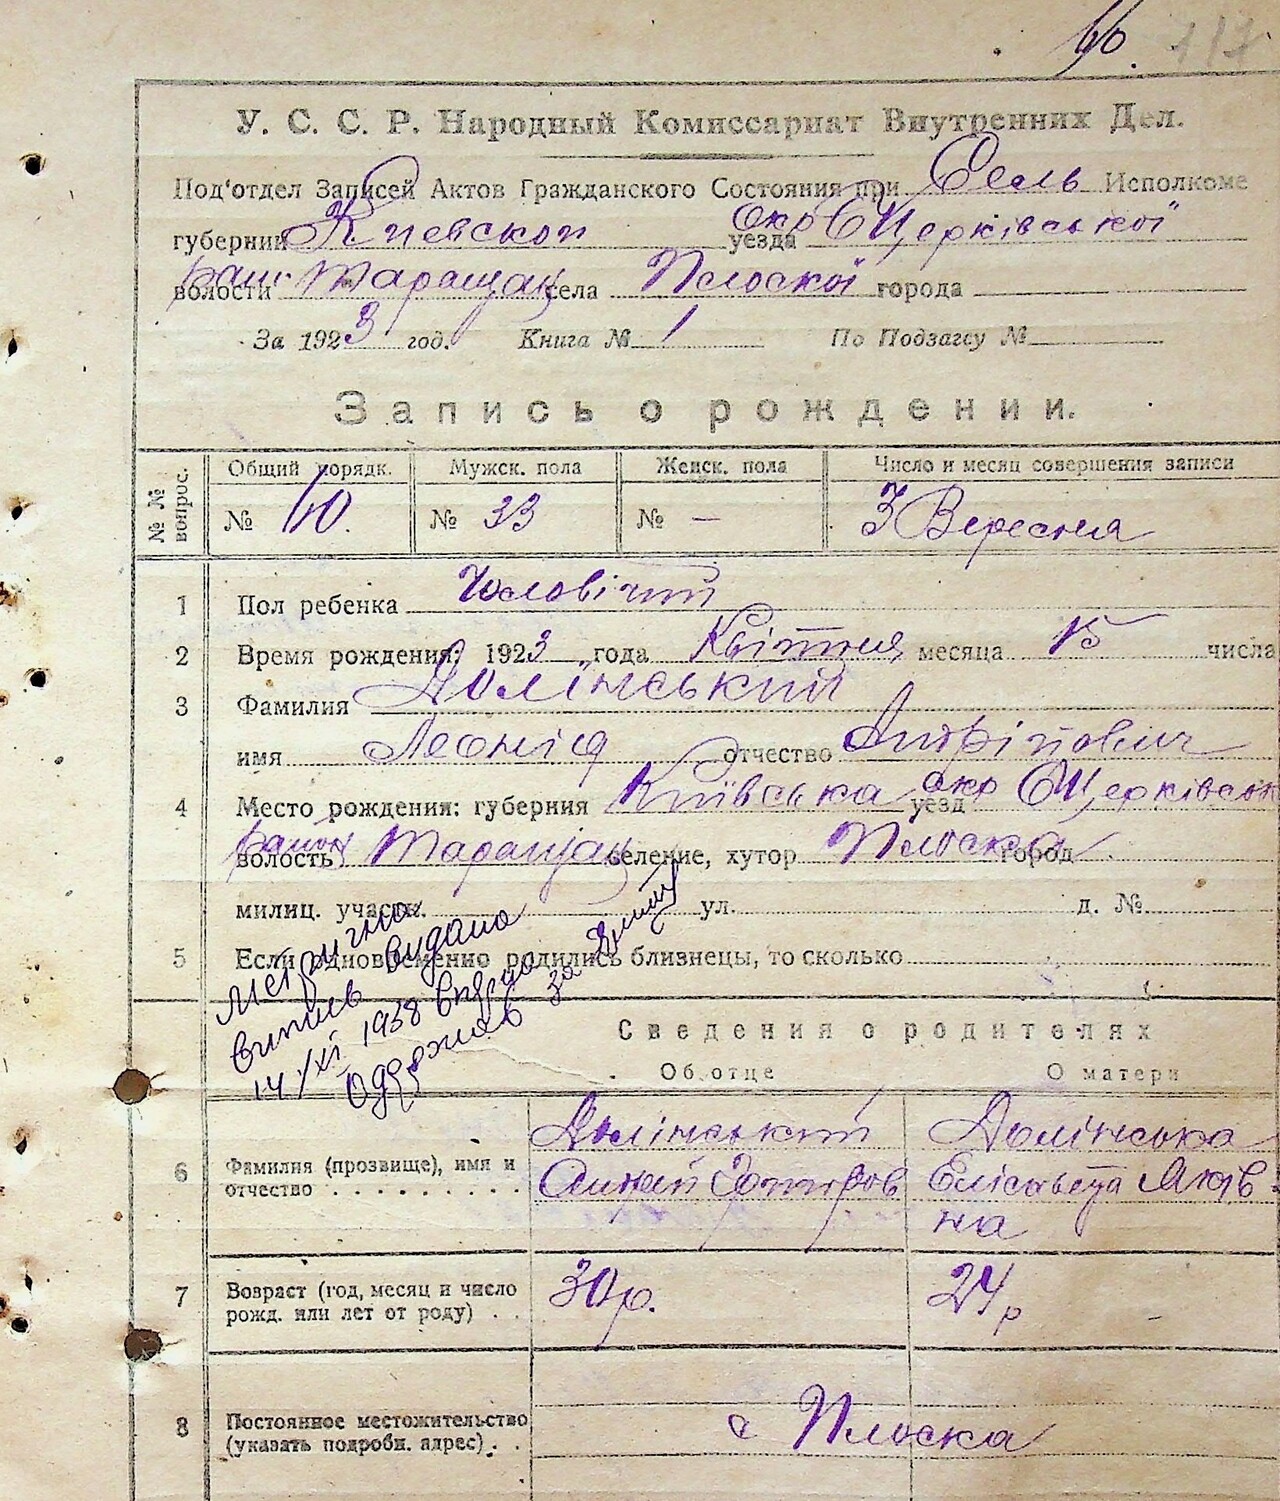 60. 117
У. С. С. Р. Народный Комиссариат Внутренних Дел.
Под'отдел Записей Актов Гражданского Состояния при Сель Исполкоме
губернии Киевской Окр уезда БЦерківської
Район волости Таращан села Плоскої города
За 1923 год. Книга № 1 По Подзагсу №
Запись о рождении.
№ № вопрос. Общий порядк. Мужск. пола Женск. пола Число и месяц совершения записи
№ 60. № 33 № — 3 Вересня
1 Пол ребенка Чоловічий
2 Время рождения: 1923 года Квітня месяца 15 числа
3 Фамилия Долінський
имя Леонід отчество Андрійович
4 Место рождения: губерния Київська окр уезд БЦерківськ
район волость Таращан селение, хутор Плоска город
милиц. участк. ул. д. №
5 Если одновременно родились близнецы, то сколько
Метрична
випись видана
14/XI 1938
Одержав за
Сведения о родителях
Об отце О матери
6 Фамилия (прозвище), имя и отчество Долінський Долінська
Андрій Єлісавета Яків-
на
7 Возраст (год, месяц и число рожд. или лет от роду) 30 р. 24 р
8 Постоянное местожительство (указать подробн. адрес) с Плоска